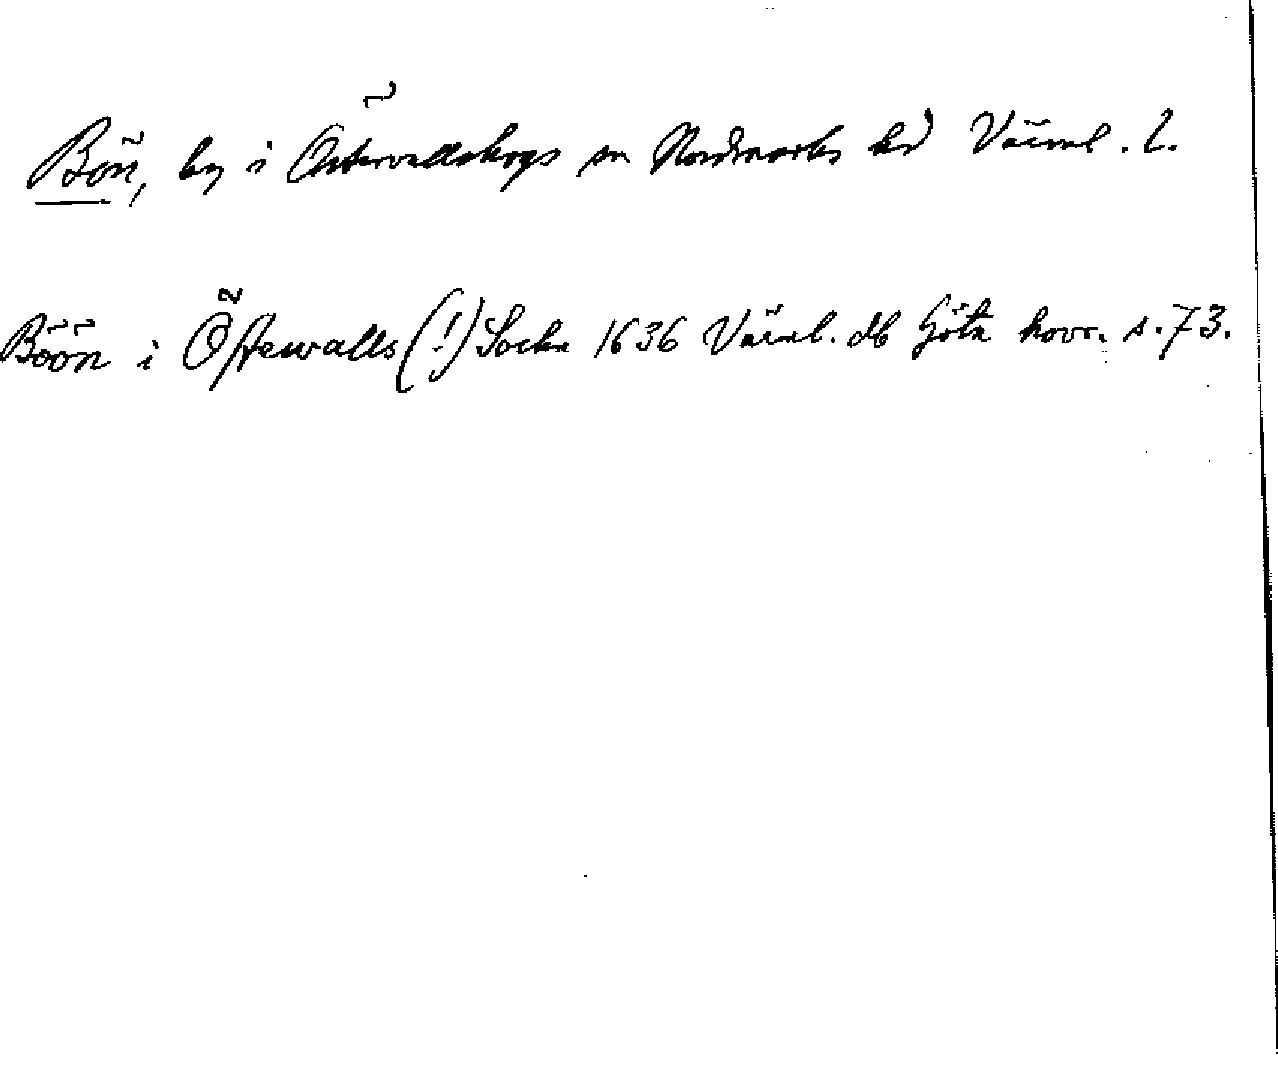 Bön, by i Östervallskogs sn Nordmarks hd Värml. l.
Böön i Östewalls (!) Sockn 1636 Värml. db Göta hovr. s. 73.